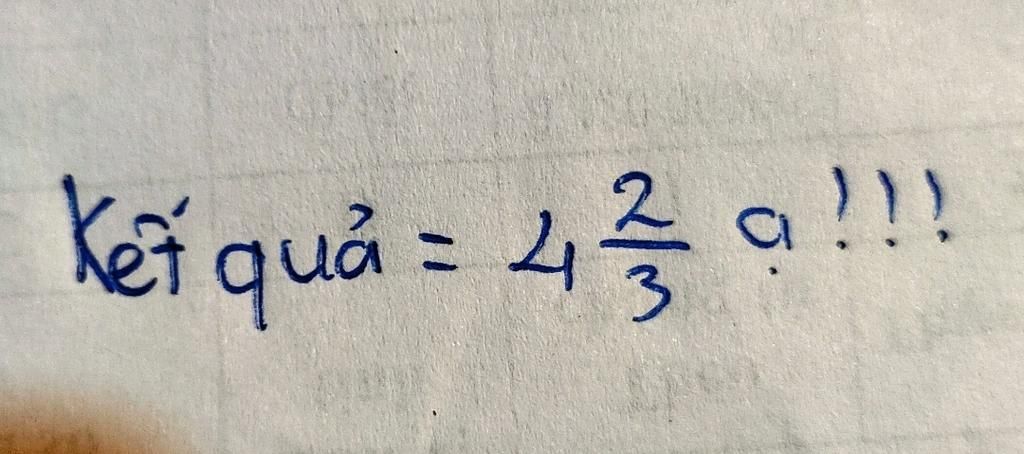 Kết quả = 4 2/3 ạ!!!